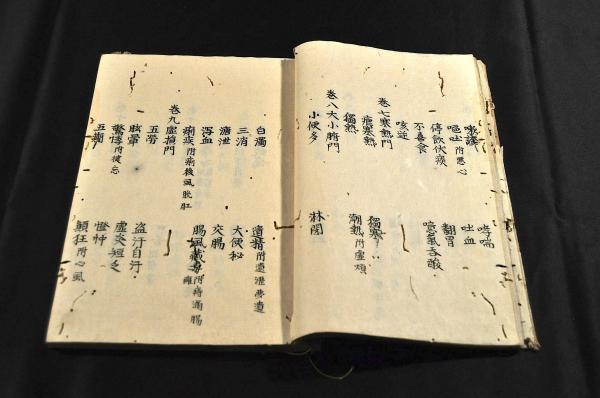 哮喘
嘔吐附惡心 吐血
停飲伏痰 翻胃
不喜食 噫氣吞酸
咳逆
卷七寒熱門
瘧寒熱 獨寒
獨熱 潮熱附虛煩
卷八大小腑門
小便多 淋閉
白濁 遺精附遺泄夢遺
三消 大便秘
溏泄 交腸
瀉血 腸風藏毒附痔漏腸癰
痢疾附痢後風脫肛
卷九虛損門
五勞 盜汗自汗
眩暈 虛炎短乏
驚悸附健忘 怔忡
五癇 顛狂附心風